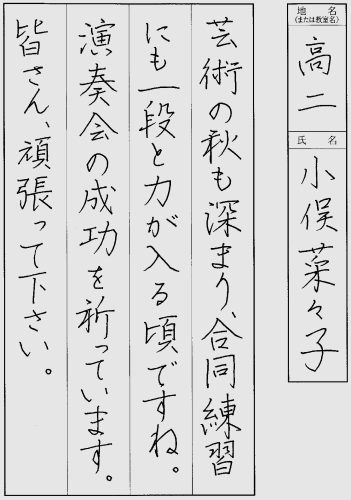 地名
(または教室名)
高二
氏名
小俣菜々子
芸術の秋も深まり、合同練習
にも一段と力が入る頃ですね。
演奏会の成功を祈っています。
皆さん、頑張って下さい。